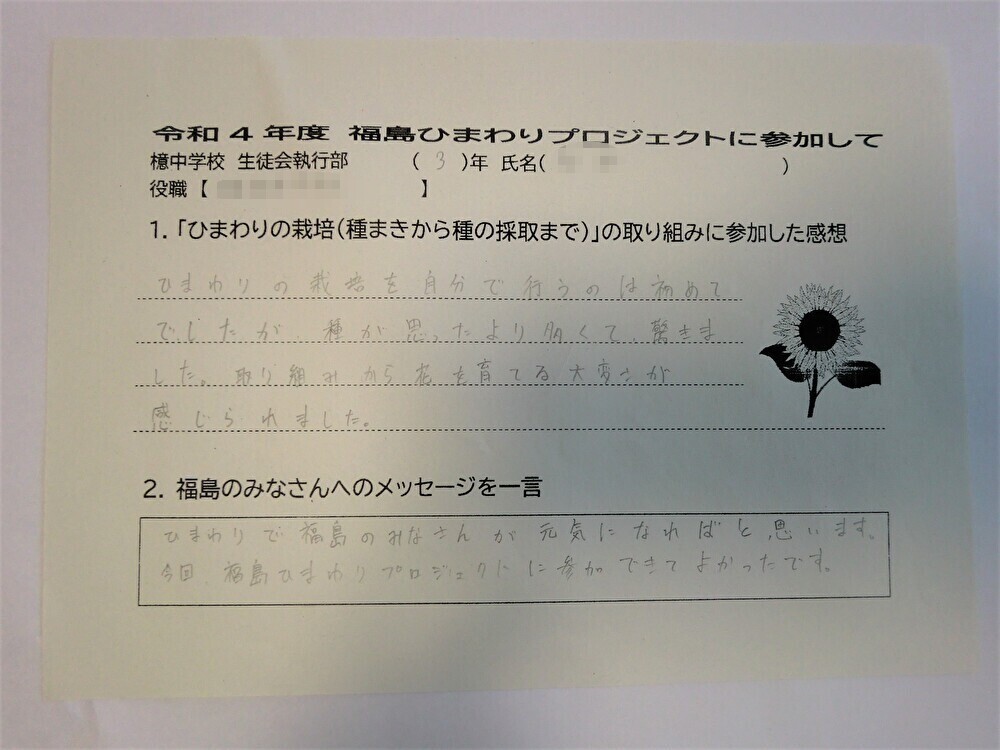 令和4年度 福島ひまわりプロジェクトに参加して
檍中学校 生徒会執行部 (3)年 氏名( )
役職【 】
1.「ひまわりの栽培(種まきから種の採取まで)」の取り組みに参加した感想
ひまわりの栽培を自分で行うのは初めて
でしたが、種が思ったより多くて、驚きま
した。取り組みから花を育てる大変さが
感じられました。
2. 福島のみなさんへのメッセージを一言
ひまわりで福島のみなさんが元気になればと思います。
今回、福島ひまわりプロジェクトに参加できてよかったです。